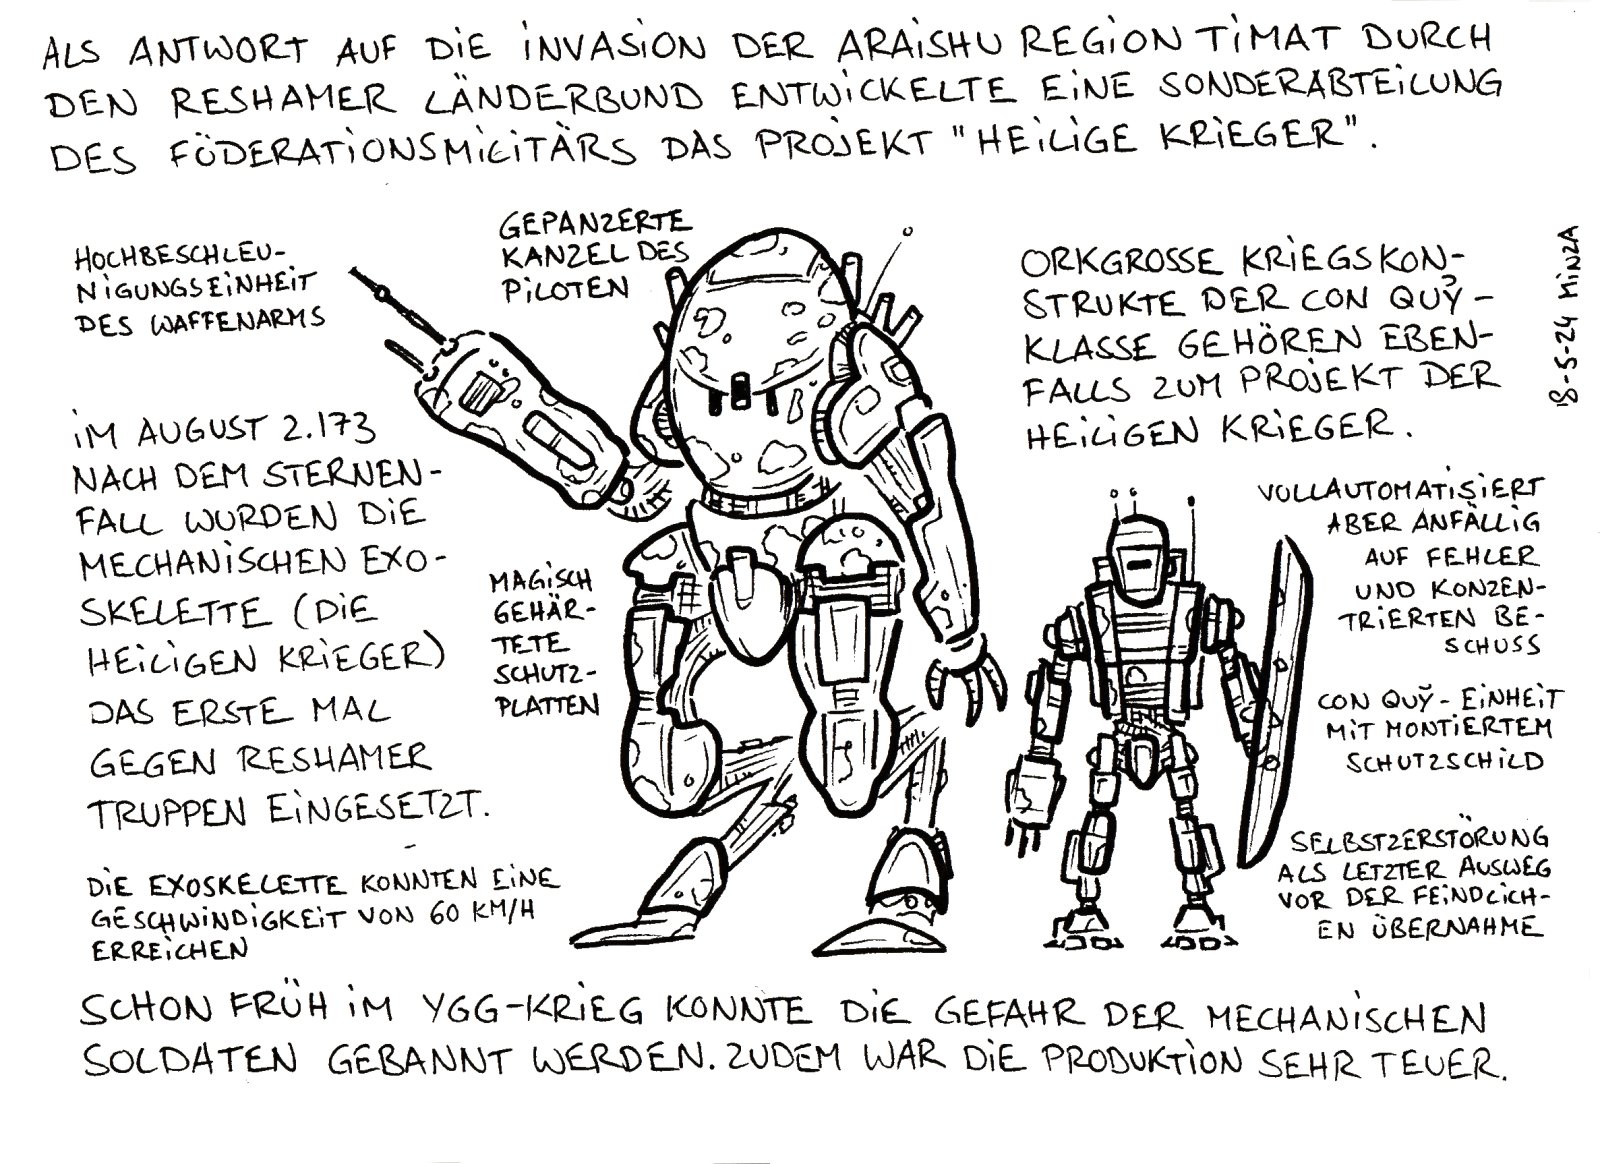 ALS ANTWORT AUF DIE INVASION DER ARAISHU REGION TIMAT DURCH
DEN RESHAMER LÄNDERBUND ENTWICKELTE EINE SONDERABTEILUNG
DES FÖDERATIONSMILITÄRS DAS PROJEKT "HEILIGE KRIEGER".
HOCHBESCHLEU-
NIGUNGSEINHEIT
DES WAFFENARMS
GEPANZERTE
KANZEL DES
PILOTEN
ORKGROSSE KRIEGSKON-
STRUKTE DER CON QUỸ-
KLASSE GEHÖREN EBEN-
FALLS ZUM PROJEKT DER
HEILIGEN KRIEGER.
18-5-24 MINZA
IM AUGUST 2.173
NACH DEM STERNEN-
FALL WURDEN DIE
MECHANISCHEN EXO-
SKELETTE (DIE
HEILIGEN KRIEGER)
DAS ERSTE MAL
GEGEN RESHAMER
TRUPPEN EINGESETZT.
MAGISCH
GEHÄR-
TETE
SCHUTZ-
PLATTEN
VOLLAUTOMATISIERT
ABER ANFÄLLIG
AUF FEHLER
UND KONZEN-
TRIERTEN BE-
SCHUSS
CON QUỸ-EINHEIT
MIT MONTIERTEM
SCHUTZSCHILD
SELBSTZERSTÖRUNG
ALS LETZTER AUSWEG
VOR DER FEINDLICH-
EN ÜBERNAHME
DIE EXOSKELETTE KONNTEN EINE
GESCHWINDIGKEIT VON 60 KM/H
ERREICHEN
SCHON FRÜH IM YGG-KRIEG KONNTE DIE GEFAHR DER MECHANISCHEN
SOLDATEN GEBANNT WERDEN. ZUDEM WAR DIE PRODUKTION SEHR TEUER.